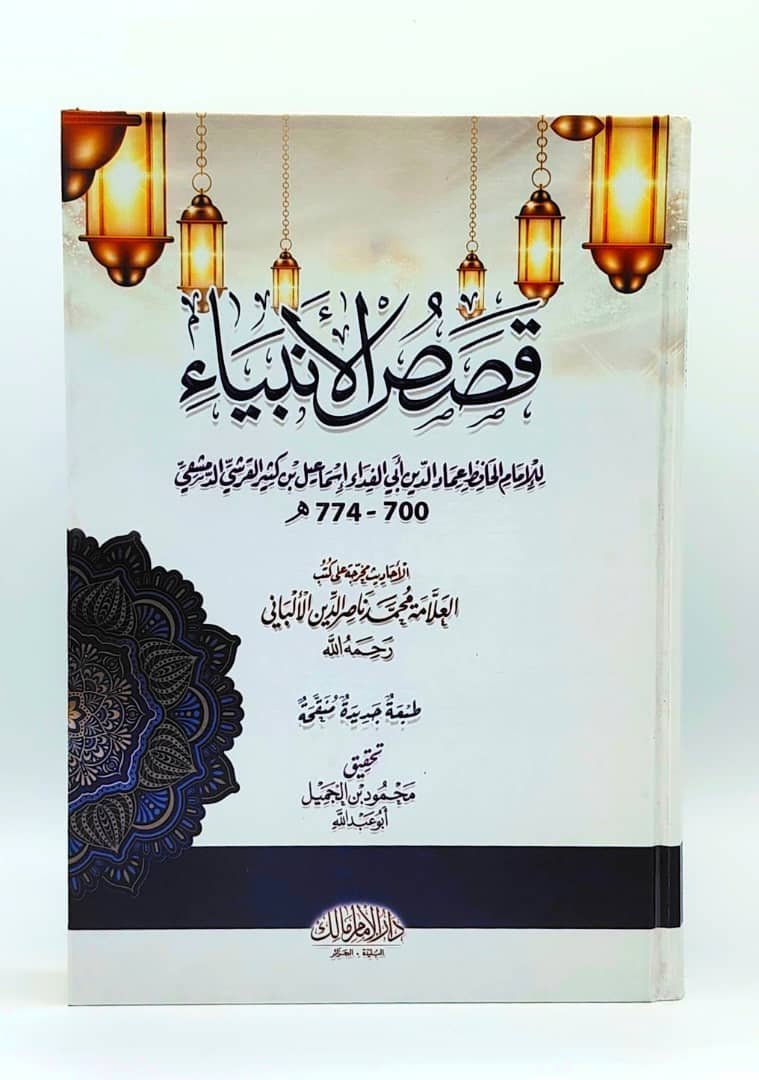 قَصَصُ الْأَنْبِيَاءِ
لِلْإِمَامِ الْحَافِظِ عِمَادِ الدِّينِ أَبِي الْفِدَاءِ إِسْمَاعِيلَ بْنِ كَثِيرٍ الْقُرَشِيِّ الدِّمَشْقِيِّ
700 - 774 هـ
الأحاديث مخرجة على كتب
العَلَّامَة مُحَمَّد نَاصِر الدِّين الأَلْبَانِي
رَحِمَهُ اللَّه
طَبْعَةٌ جَدِيدَةٌ مُنَقَّحَةٌ
تحقيق
مَحْمُود بْن الجَمِيل
أبُو عَبْد اللَّه
دار الإمام مالك
البليدة - الجزائر